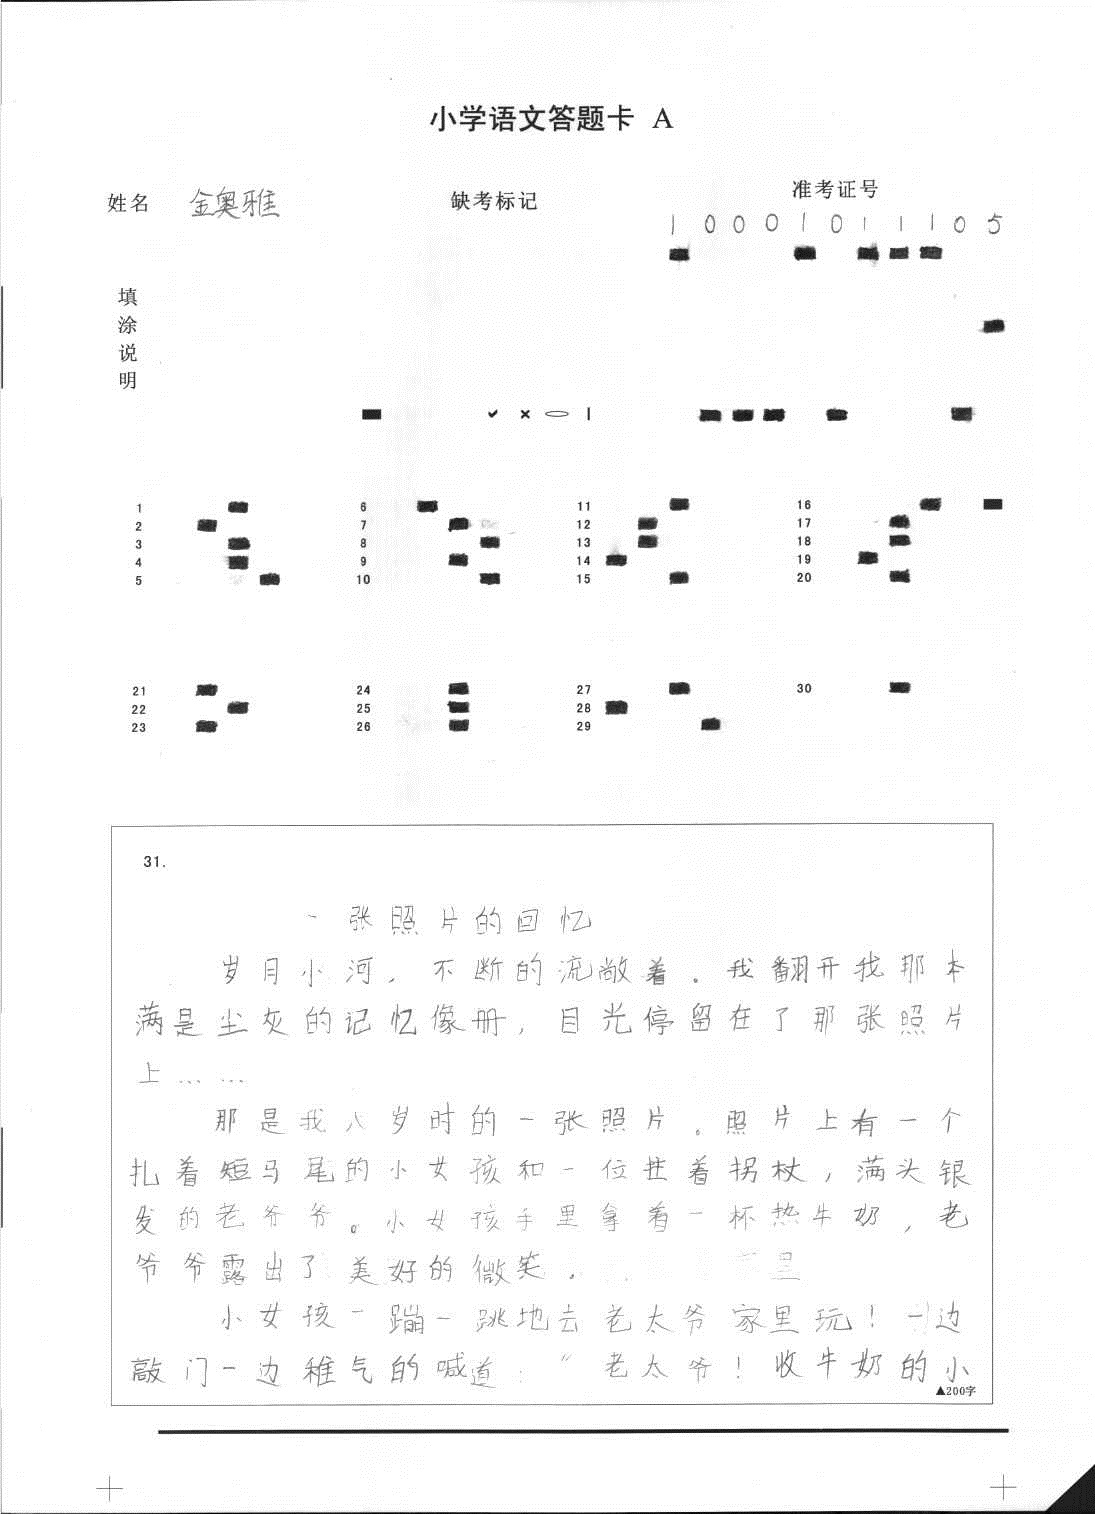 小学语文答题卡 A
姓名 金奥雅 缺考标记 准考证号
1 0 0 0 1 0 1 1 1 0 5
填涂说明
1 6 11 16
2 7 12 17
3 8 13 18
4 9 14 19
5 10 15 20
21 24 27 30
22 25 28
23 26 29
31.
一张照片的回忆
岁月小河，不断的流敞着。我翻开我那本
满是尘灰的记忆像册，目光停留在了那张照片
上……
那是我八岁时的一张照片。照片上有一个
扎着短马尾的小女孩和一位拄着拐杖，满头银
发的老爷爷。小女孩手里拿着一杯热牛奶，老
爷爷露出了美好的微笑。
小女孩一蹦一跳地去老太爷家里玩！一边
敲门一边稚气的喊道：“老太爷！收牛奶的小
▲200字